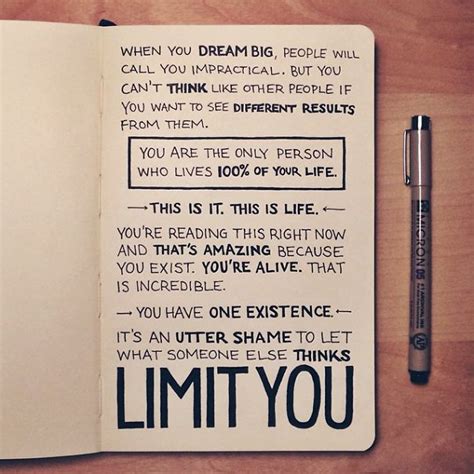 WHEN YOU DREAM BIG, PEOPLE WILL
CALL YOU IMPRACTICAL. BUT YOU
CAN'T THINK LIKE OTHER PEOPLE IF
YOU WANT TO SEE DIFFERENT RESULTS
FROM THEM.
YOU ARE THE ONLY PERSON
WHO LIVES 100% OF YOUR LIFE.
→THIS IS IT. THIS IS LIFE.←
YOU'RE READING THIS RIGHT NOW
AND THAT'S AMAZING BECAUSE
YOU EXIST. YOU'RE ALIVE. THAT
IS INCREDIBLE.
→YOU HAVE ONE EXISTENCE.←
IT'S AN UTTER SHAME TO LET
WHAT SOMEONE ELSE THINKS
LIMIT YOU
MICRON 05